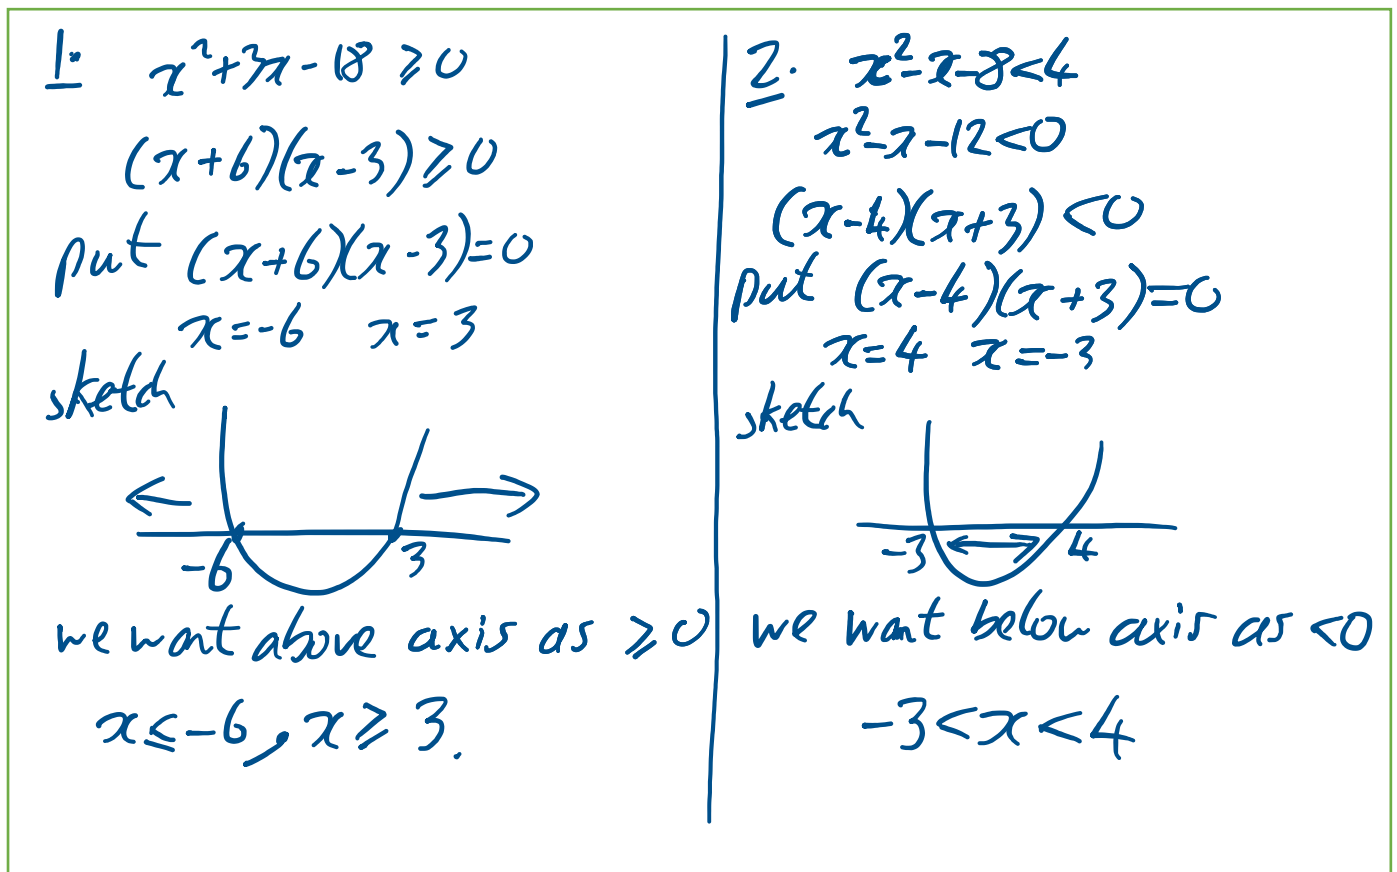 1. x²+3x-18 ≥0
(x+6)(x-3)≥0
put (x+6)(x-3)=0
x=-6 x=3
sketch
-6 3
we want above axis as ≥0
x≤-6, x≥3.
2. x²-x-8<4
x²-x-12<0
(x-4)(x+3)<0
put (x-4)(x+3)=0
x=4 x=-3
sketch
-3 4
we want below axis as <0
-3<x<4